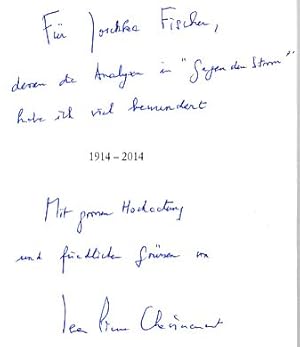 Für Joschka Fischer,
deren die Analysen in "Gegen den Strom"
habe ich viel bewundert
1914 – 2014
Mit grossen Hochachtung
und friedlichen Grüssen von
Jean Pierre Chevènement